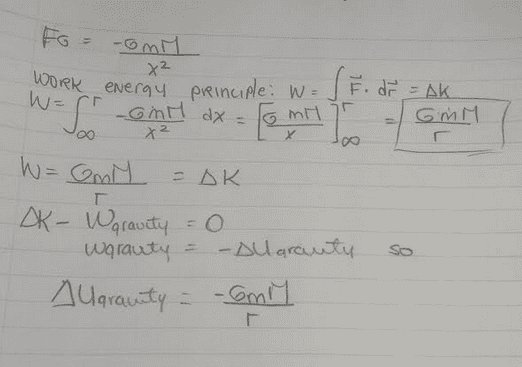 FG = -GmM/x²
WORK energy principle: W = ∫F⃗. dr⃗ = ΔK
W = ∫∞^r -GmM/x² dx = [GmM/x]∞^r = GmM/r
W = GmM/r = ΔK
ΔK - Wgravity = 0
Wgravity = -ΔUgravity so
ΔUgravity = -GmM/r